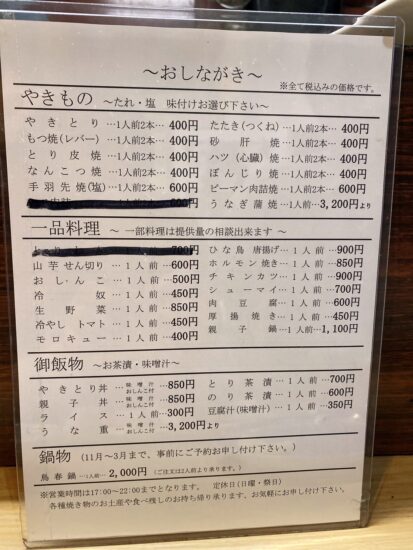 ～おしながき～
※全て税込みの価格です。
やきもの ～たれ・塩 味付けお選び下さい～
やきとり…1人前2本…400円
もつ焼(レバー)…1人前2本…400円
とり皮焼…1人前2本…400円
なんこつ焼…1人前2本…400円
手羽先焼(塩)…1人前2本…600円
たたき(つくね)…1人前2本…400円
砂肝焼…1人前2本…400円
ハツ(心臓)焼…1人前2本…400円
ぼんじり焼…1人前2本…400円
ピーマン肉詰焼…1人前2本…600円
うなぎ蒲焼…1人前…3,200円より
一品料理 ～ 一部料理は提供量の相談出来ます ～
700円
山芋せん切り…1人前…600円
おしんこ…1人前…500円
冷奴…1人前…450円
生野菜…1人前…850円
冷やしトマト…1人前…450円
モロキュー…1人前…400円
ひな鳥唐揚げ…1人前…900円
ホルモン焼き…1人前…850円
チキンカツ…1人前…900円
シューマイ…1人前…700円
肉豆腐…1人前…600円
厚揚焼き…1人前…450円
親子鍋…1人前…1,100円
御飯物 ～お茶漬・味噌汁～
やきとり丼…味噌汁おしんこ付…850円
親子丼…味噌汁おしんこ付…850円
ライス…1人前…300円
うな重…味噌汁おしんこ付…3,200円より
とり茶漬…1人前…700円
のり茶漬…1人前…600円
豆腐汁(味噌汁)…1人前…350円
鍋物 (11月～3月まで、事前にご予約お申し付け下さい。)
鳥春鍋…1人前…2,000円 (ご注文は2人前より承ります。)
※営業時間は17:00～22:00までとなります。 定休日(日曜・祭日)
各種焼き物のお土産や食べ残しのお持ち帰り承ります、お気軽にお申し付け下さい。